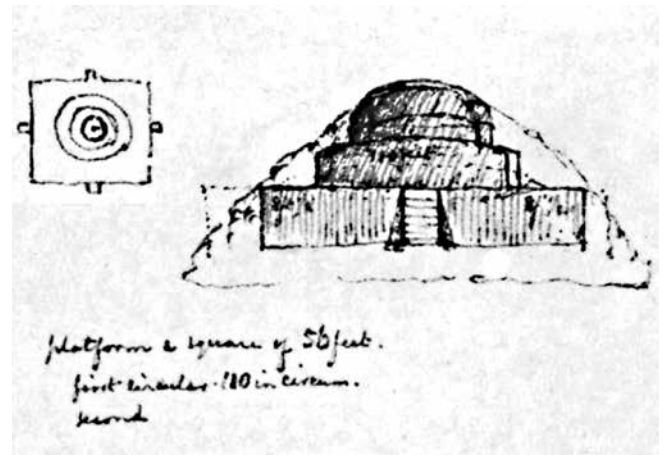 platform a square of 56 feet.
first circular. 110 in circum.
second